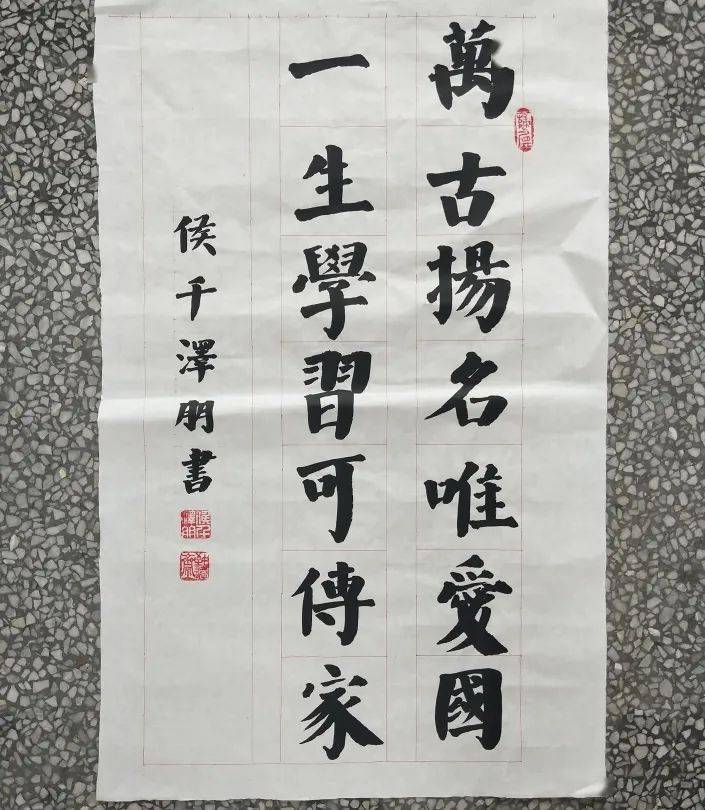 萬古揚名唯愛國
一生學習可傳家
侯千澤朋書